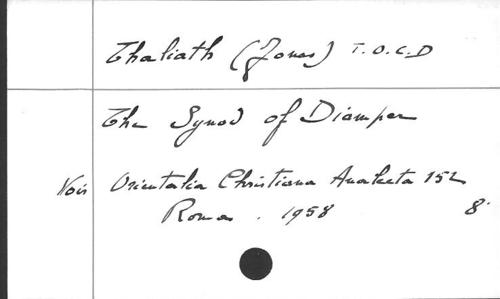 Thaliath (Jonas) T.O.C.D
The Synod of Diamper
Voir Orientalia Christiana Analecta 152
Roma. 1958 8°